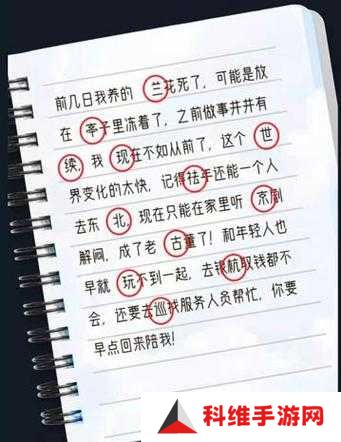 前几日我养的 兰花死了，可能是放
在 亭子里冻着了，之前做事井井有
续，我 现在不如从前了，这个 世
界变化的太快，记得祛年还能一个人
去东 北，现在只能在家里听 京剧
解闷，成了老 古董了！和年轻人也
早就 玩不到一起，去银杭取钱都不
会，还要去巡找服务人员帮忙，你要
早点回来陪我！
科维手游网